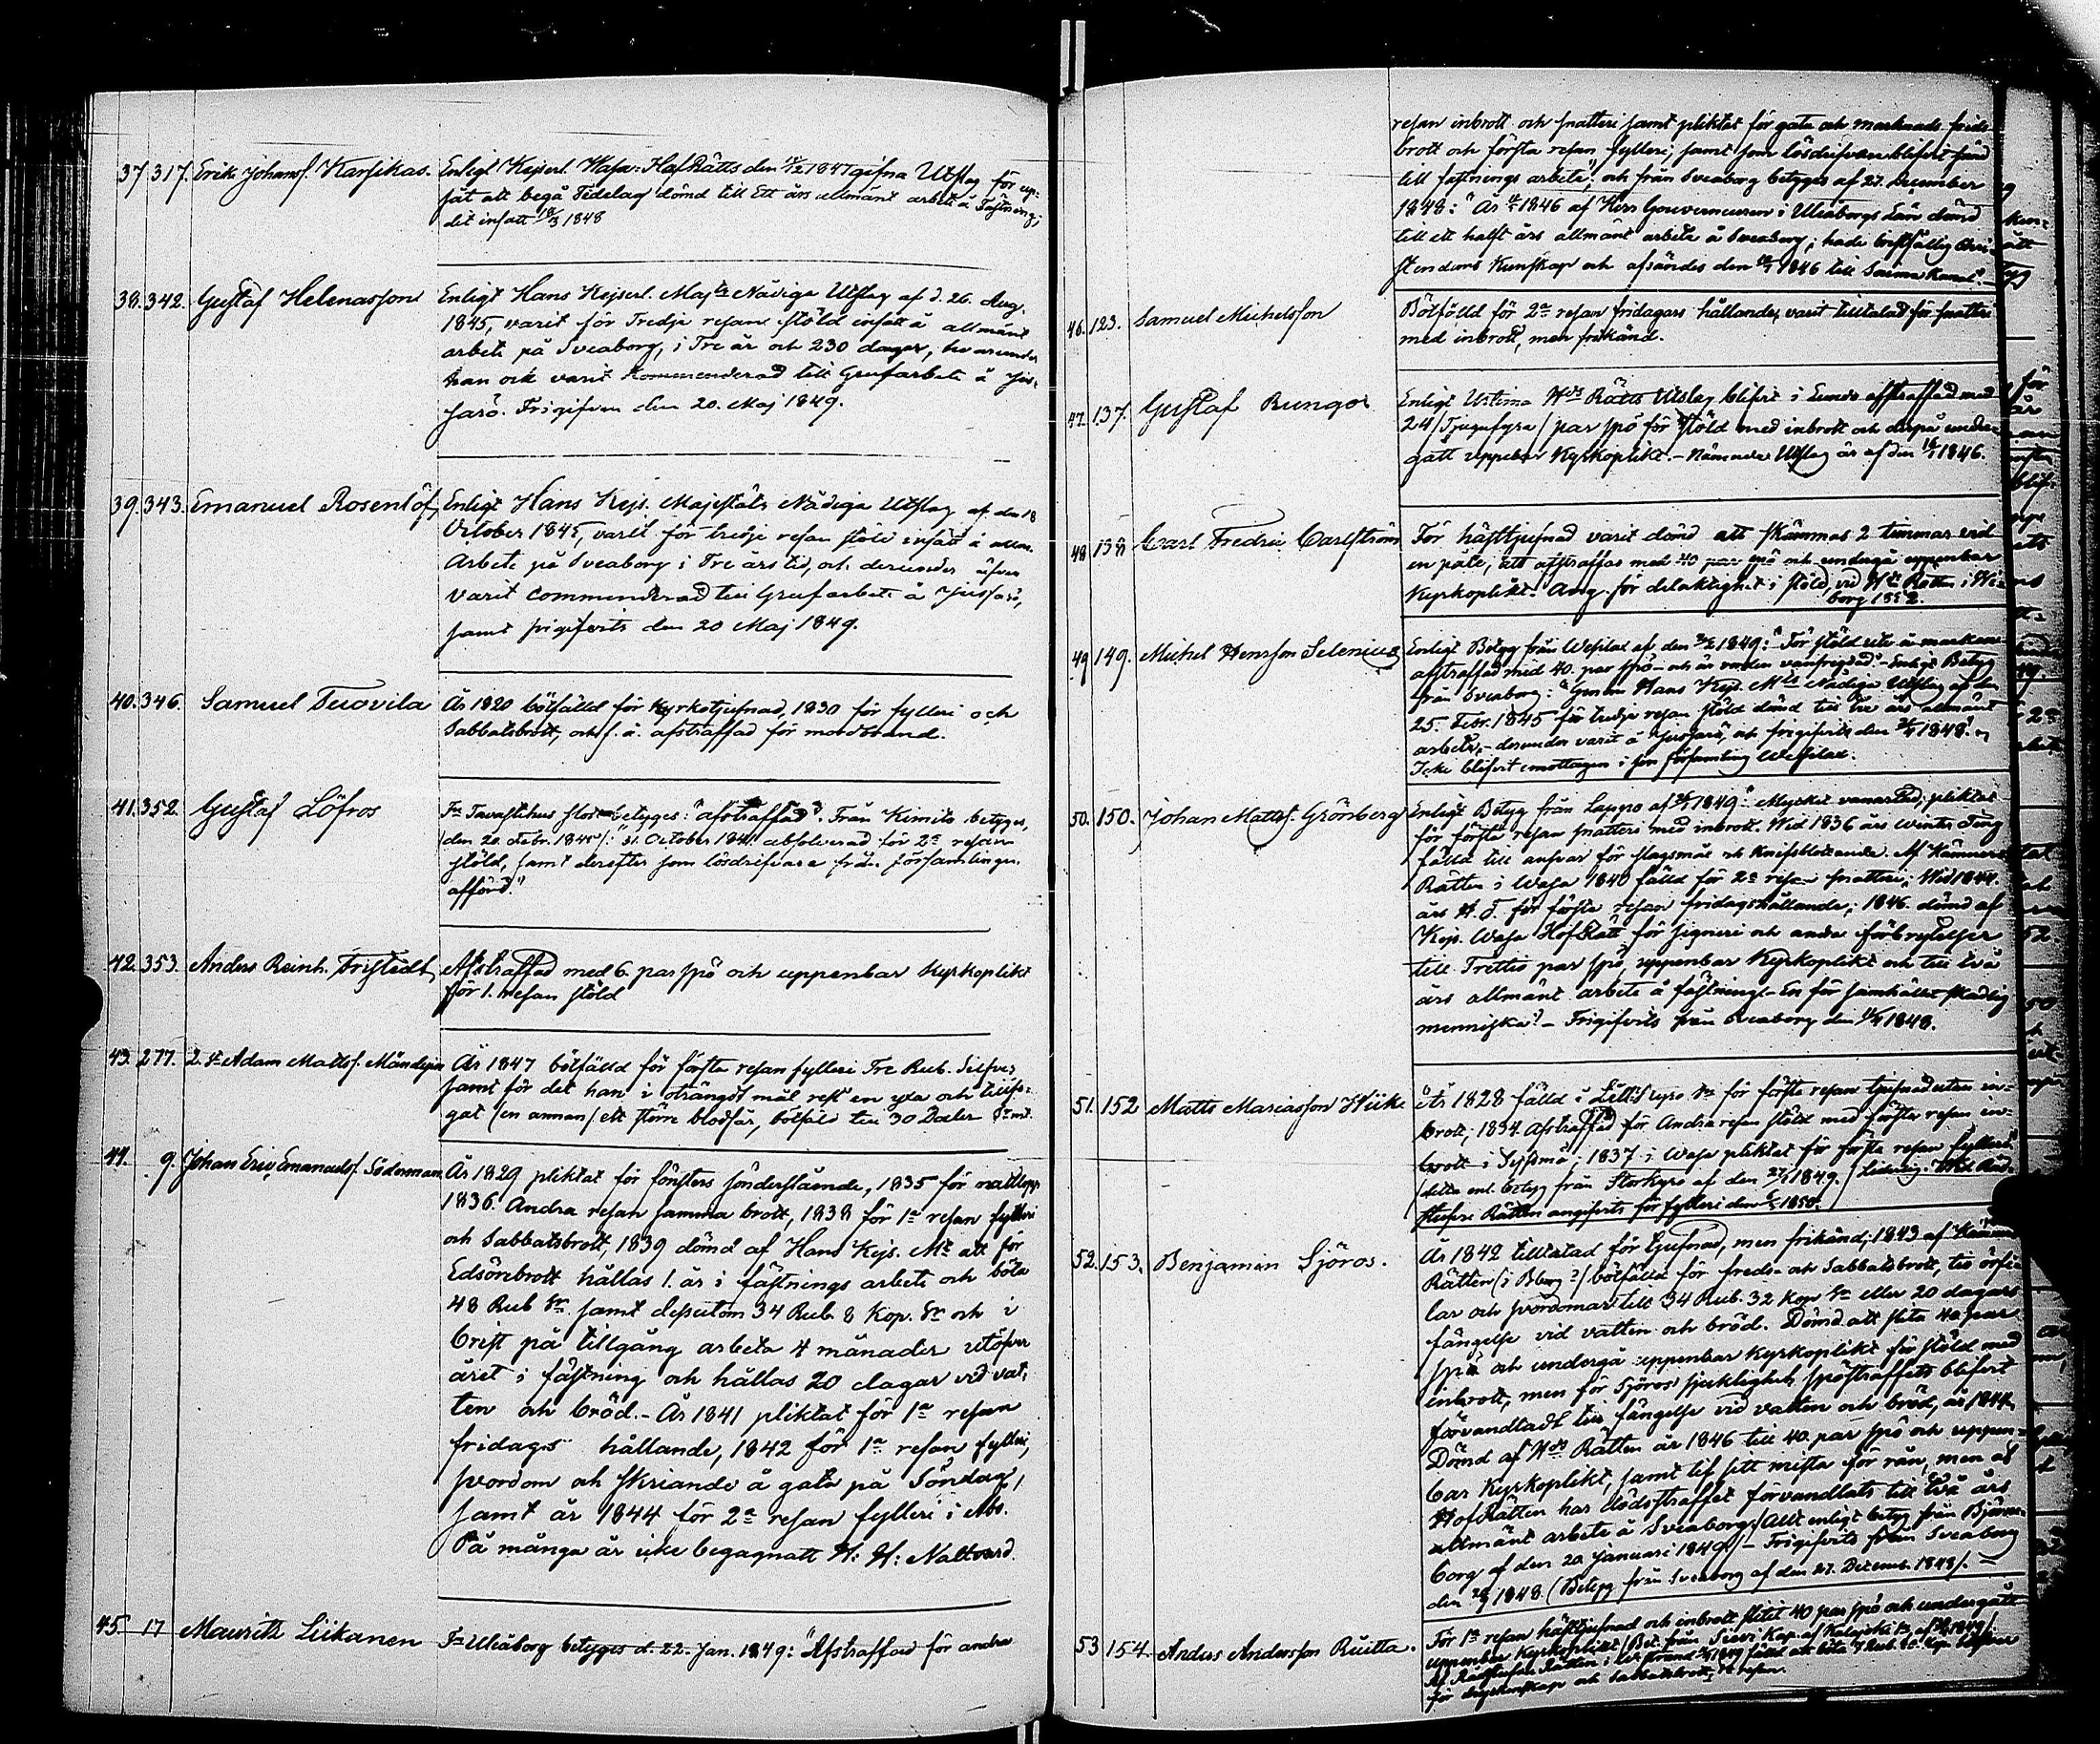 37 317. Erik Johansf. Karsikas. Enligt Kejserl. Wasa HofRätts den 1847 gifna Utslag för up-
såt att begå Tidelag dömd till Ett års allmänt arbete å Fästning;
dit insatt 1848
38. 342. Gustaf Helenasson Enligt Hans Kejserl. Majts Nådiga Utslag af d. 26. Aug.
1845, varit för Tredje resan stöld insatt å allmänt
arbete på Sveaborg, i Tre år och 230 dagar, hvarunder
han ock varit Kommenderad till Grufarbete å Jus-
sarö. Frigifven den 20. Maj 1849.
39. 343. Emanuel Rosenlöf, Enligt Hans Kejs. Majestäts Nådiga Utslag af den 18
October 1845, varit för tredje resan stöld insatt å allm.
Arbete på Sveaborg i Tre års tid, och derunder äfven
varit commenderad till Grufarbete å Jussarö,
samt frigifvits den 20 Maj 1849.
40. 346. Samuel Tuovila År 1820 bötfälld för Kyrkotjufnad, 1830 för fylleri och
Sabbatsbrott, och s. å. afstraffad för mordbrand.
41. 352. Gustaf Löfros Fn Tavastehus betyges: "afstraffad". Från Kimito betyges,
den 20. Febr. 1845/: "31. October 1841 absolverad för 2a resan
stöld, samt derefter som lösdrifvare från församlingen
afförd."
42. 353. Anders Reinh. Fristedt, Afstraffad med 6. par spö och uppenbar Kyrkoplikt
för 1. resan stöld
43. 277. 2. Adam Mattsf. År 1847 bötfälld för första resan fylleri Tre Rub. Silfver
samt för det han i oträngdt mål rest en yxa och tillfo-
gat (en annan) ett större blodsår, bötfäld till 30 Daler Srmt.
44. 9. Johan Eric Emanuelsf. Söderman År 1829 pliktat för fönsters sönderslående, 1835 för nattlopp
1836. Andra resan samma brott, 1838 för 1a resan fylleri
och Sabbatsbrott, 1839 dömd af Hans Kejs. Mt att för
Edsöresbrott hållas 1. år i fästnings arbete och böta
48 Rub Sr samt dessutom 34 Rub 8 Kop. Sr och i
brist på tillgång arbeta 4 månader utöfver
året i fästning och hållas 20 dagar vid vat-
ten och bröd. - År 1841 pliktat för 1a resan
fridags hållande, 1842 för 1a resan fylleri,
svordom och skriande å gata på Söndag,
samt år 1844 för 2a resan fylleri i Åbo.
På många år icke begagnatt H: H: Nattvard.
45 17 Mauritz Liikanen Fn Uleåborg betyges d. 22. Jan. 1849: "Afstraffad för andra
resan inbrott och snatteri samt pliktat för gatu och marknads frids-
brott och första resan fylleri, samt som lösdrifvare blifvit sänd
till fästnings arbete", och från Sveaborg betyges af 27. December
1848: "År 1846 af Herr Gouverneuren i Uleåborgs Län dömd
till ett halft års allmänt arbete å Sveaborg; hade bristfällig Chri-
stendoms Kunskap och afsändes den 1846 till Saima Kanal".
46. 123. Samuel Michelsson Bötfälld för 2a resan fridagars hållande, varit tilltalad för snatteri
med inbrott, men frikänd.
47. 137. Gustaf Rungos Enligt Wds Rätts Utslag blifvit i afstraffad med
24 /Tjugufyra/ par spö för stöld med inbrott och derpå under-
gått uppenbar Kyrkoplikt. - Nämnde Utslag är af den 1846.
48 138 Carl Fredric Carlström För hästtjufnad varit dömd att skämmas 2 timmar vid
en påle, att afstraffas med 40 par spö och undergå uppenbar
Kyrkoplikt. Ang. för delaktighet i stöld, vid Rätten i Wi-
borg 1852.
49 149. Michel Hensson Selenius Enligt Betyg från af den 1849: "För stöld
afstraffad med 40. par spö - och är vorden vanfrejdad". - Enligt Betyg
från Sveaborg: "Genom Hans Kejs. Mts Nådiga Utslag af den
25. Febr. 1845 för tredje resan stöld dömd till tre års allmänt
arbete, - derunder varit å Jussarö, och frigifvits den 1848".
Icke blifvit emottagen i sin församling
50. 150. Johan Mattsf. Grönberg Enligt Betyg från Lappo af 1849: "Mycket vanartad; pliktat
för första resan snatteri med inbrott. Wid 1836 års Winter Ting
fälld till ansvar för slagsmål och Knifsblottande. Af Kämners
Rätten i Wasa 1840 fälld för 2a resan snatteri; Wid 1844.
års H. T. för första resan fridagshållande; 1846. dömd af
Kejs. Wasa HofRätt för signeri och andra förbrytelser
till Trettio par spö, uppenbar Kyrkoplikt och till två
års allmänt arbete å fästning - En för samhället skadlig
menniska". - Frigifvits från Sveaborg den 1848.
51. 152 Matts Mariasson Hiike "År 1828 fälld i för första resan tjufnad utan in-
brott, 1834. Afstraffad för Andra resan stöld med första resan in-
brott i; 1837 i Wasa pliktat för första resan fylleri"
/detta enl. betyg från Storkyro af den 1849./
Rätten angifvits för fylleri den 1850.
52. 153. Benjamin Sjöros. År 1842 tilltalad för tjufnad, men frikänd; 1843 af Kämners
Rätten (i Bborg?) bötfälld för freds- och Sabbatsbrott, tio örfi-
lar och svordomar till 34 Rub. 32 Kop Sr eller 20 dagars
fängelse vid vatten och bröd. Dömd att slita 40. par
spö och undergå uppenbar Kyrkoplikt för stöld med
inbrott, men för Sjöros' sjuklighet, spöstraffets blifvit
förvandladt till fängelse vid vatten och bröd, år 1844.
Dömd af Rätten år 1846 till 40. par spö och uppen-
bar Kyrkoplikt, samt lif sitt mista för rån, men af
HofRätten har dödsstraffet förvandlats till två års
allmänt arbete å Sveaborg. (Allt enligt betyg från Björne-
borg af den 20 Januari 1849) - Frigifvits från Sveaborg
den 1848. (Betyg från Sveaborg af den 27. Decemb. 1848).
53 154. Anders Andersson Ruitta. För 1a resan hästtjufnad och inbrott slitit 40 par spö och undergått
uppenbar Kyrkoplikt /Bet. från Sievi Kap. af Kalajoki Sn af 1849/
Af Rådstufvu Rätten i 1849 fälld att böta Rub. Kop. Silfver
för dryckenskap och Sabbatsbrott, resan.